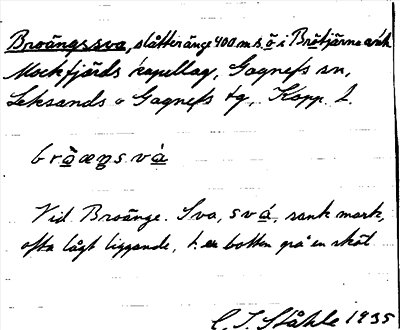 Broängssva, slåtteränge 400 m s. ö. i Brötjärna
Mockfjärds kapellag, Gagnefs sn,
Leksands o Gagnefs tg, Kopp. l.
bròæŋsvá
Vid Broänge. Sva, svá, sank mark,
ofta lågt liggande, t. ex. botten på en skål
C. I. Ståhle 1935